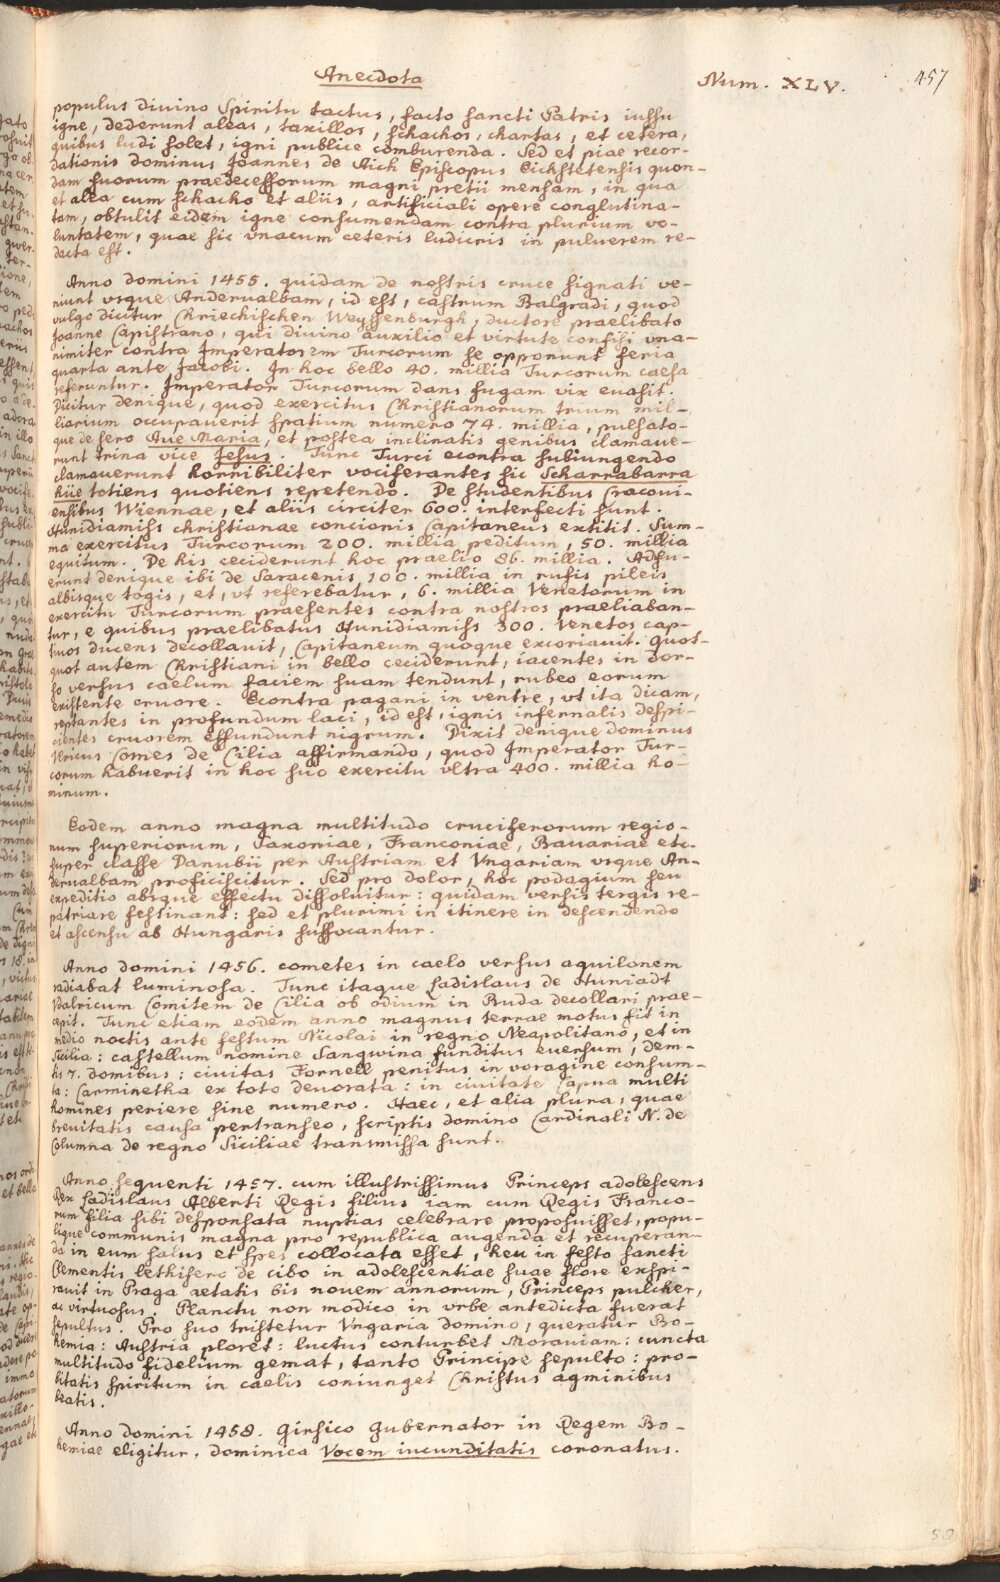 Anecdota
Num. XLV.
457
populus divino Spiritu tactus, facto sancti Patris iussu
igne, dederunt aleas, taxillos, schachos, chartas, et cetera,
quibus ludi solet, igni publice comburenda. Sed et piae recor-
dationis dominus Joannes de Aich Episcopus Eichstetensis quon-
dam suorum praedecessorum magni pretii mensam, in qua
et alea cum schacho et aliis, artificiali opere conglutina-
tam, obtulit eidem igne consumendam contra plurium vo-
luntatem, quae sic vnacum ceteris ludicris in puluerem re-
dacta est.
Anno domini 1455. quidam de nostris cruce signati ve-
niunt vsque Anderualbam, id est, castrum Balgradi, quod
vulgo dicitur Chriechischen Weyssenburgh, ductore praelibato
Joanne Capistrano, qui divino auxilio et virtute confisi vna-
nimiter contra Imperatorem Turcorum se opponunt feria
quarta ante Jacobi. In hoc bello 40. millia Turcorum caesa
referuntur. Imperator Turcorum dans fugam vix euasit.
Dicitur denique, quod exercitus Christianorum trium mil-
liarium occupauerit spatium numero 74. millia, pulsato-
que de sero Aue Maria, et postea inclinatis genibus clamaue-
runt trina vice Jesus. Tunc Turci econtra subiungendo
clamauerunt horribiliter vociferantes sic Scharrabarra
hüe totiens quotiens repetendo. De studentibus Cracoui-
ensibus Wiennae, et aliis circiter 600. interfecti sunt.
Hunidiamiss christianae concionis Capitaneus extitit. Sum-
ma exercitus Turcorum 200. millia peditum, 50. millia
equitum. De his ceciderunt hoc praelio 86. millia. Adfu-
erunt denique ibi de Saracenis, 100. millia in rufis pileis
albisque togis, et, vt referebatur, 6. millia Venetorum in
exercitu Turcorum praesentes contra nostros praeliaban-
tur, e quibus praelibatus Hunidiamiss 300. Venetos cap-
tiuos ducens decollauit, Capitaneum quoque excoriauit. Quot-
quot autem Christiani in bello ceciderunt, iacentes in dor-
so versus caelum faciem suam tendunt, rubeo eorum
existente cruore. Econtra pagani in ventre, vt ita dicam,
reptantes in profundum laci, id est, ignis infernalis despi-
cientes cruorem effundunt nigrum. Dixit denique dominus
Vlricus Comes de Cilia affirmando, quod Imperator Tur-
corum habuerit in hoc suo exercitu vltra 400. millia ho-
minum.
Eodem anno magna multitudo cruciferorum regio-
num superiorum, Saxoniae, Franconiae, Bauariae etc.
super classe Danubii per Austriam et Vngariam vsque An-
derualbam proficiscitur. Sed pro dolor, hoc podagium seu
expeditio absque effectu dissoluitur: quidam versis tergis re-
patriare festinant: sed et plurimi in itinere in descendendo
et ascensu ab Hungaris suffocantur.
Anno domini 1456. cometes in caelo versus aquilonem
radiabat luminosa. Tunc itaque Ladislaus de Huniadt
Vdalricum Comitem de Cilia ob odium in Buda decollari prae-
cepit. Tunc etiam eodem anno magnus terrae motus fit in
medio noctis ante festum Nicolai in regno Neapolitano, et in
Sicilia: castellum nomine Sanguina funditus euersum, dem-
tis 7. domibus: ciuitas Tornell penitus in voragine consum-
ta: Carminetha ex toto deuorata: in ciuitate Capua multi
homines periere sine numero. Haec, et alia plura, quae
breuitatis causa pertranseo, scriptis domino Cardinali N. de
Columna de regno Siciliae transmissa sunt.
Anno sequenti 1457. cum illustrissimus Princeps adolescens
Rex Ladislaus Alberti Regis filius iam cum Regis Franco-
rum filia sibi desponsata nuptias celebrare proposuisset, popu-
lique communis magna pro republica augenda et recuperan-
da in eum salus et spes collocata esset, heu in festo sancti
Clementis lethifero de cibo in adolescentiae suae flore exspi-
rauit in Praga aetatis bis nouem annorum, Princeps pulcher,
ac virtuosus. Planctu non modico in vrbe antedicta fuerat
sepultus. Pro suo tristetur Vngaria domino, queratur Bo-
hemia: Austria ploret: luctus conturbet Morauiam: cuncta
multitudo fidelium gemat, tanto Principe sepulto: pro-
bitatis spiritum in caelis coniunget Christus agminibus
beatis.
Anno domini 1458. Girsico Gubernator in Regem Bo-
hemiae eligitur, dominica Vocem iucunditatis coronatus.
58